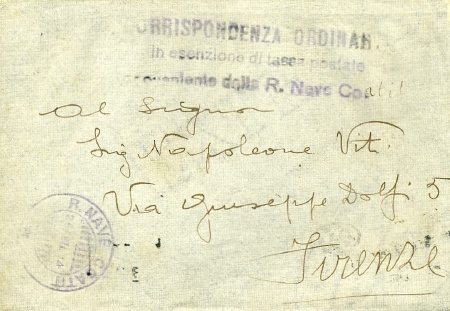 CORRISPONDENZA ORDINAR
in esenzione di tassa postale
proveniente dalla R. Nave Coatit
Al Signor
Sig Napoleone Viti
Via Giuseppe Dolfi 5
Firenze
R. NAVE COATIT